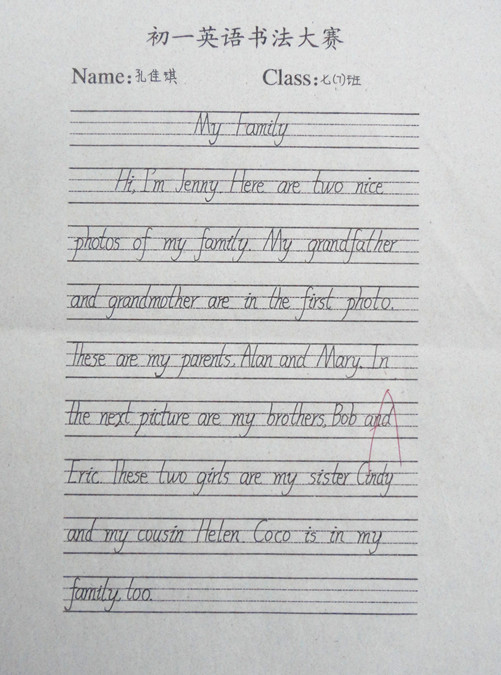 初一英语书法大赛
Name: 孔佳琪 Class: 七(7)班
My Family
Hi, I'm Jenny. Here are two nice
photos of my family. My grandfather
and grandmother are in the first photo.
These are my parents, Alan and Mary. In
the next picture are my brothers, Bob and
Eric. These two girls are my sister Cindy
and my cousin Helen. Coco is in my
family, too.
A